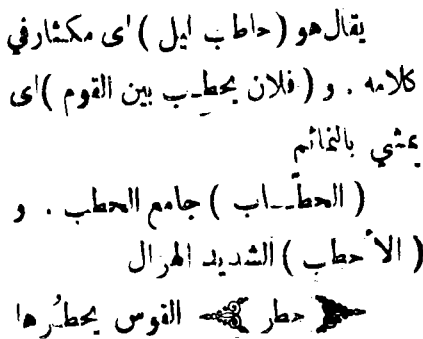 يقال هو ( حاطب ليل ) اى مكثار في
كلامه . و ( فلان يحطـب بين القوم ) اى
يمشي بالنمائم
( الحطّـاب ) جامع الحطب . و
( الأحطب ) الشديد الهزال
حطر القوس يحطـُرها